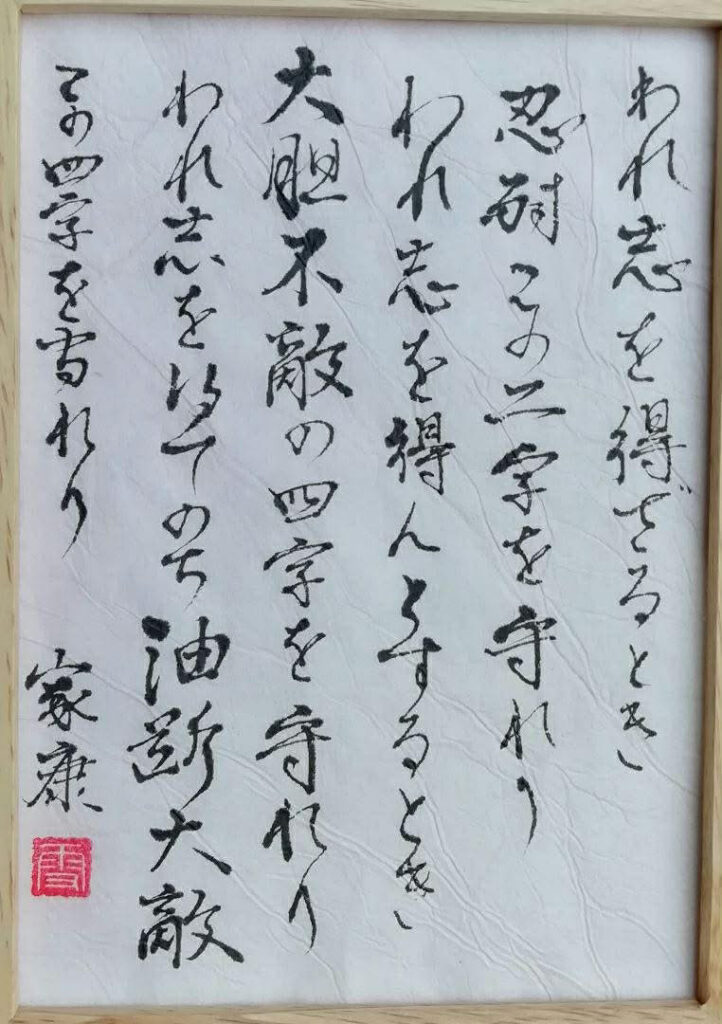 われ志を得ざるとき
忍耐この二字を守れり
われ志を得んとするとき
大胆不敵の四字を守れり
われ志を得てのち油断大敵
この四字を守れり
家康